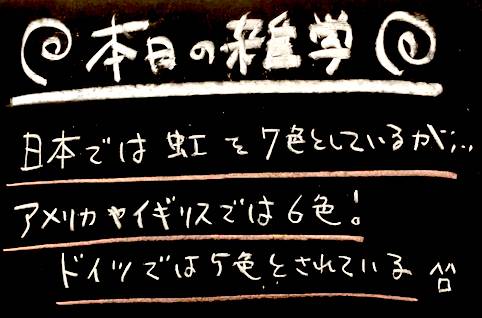 本日の雑学
日本では虹を7色としているが…
アメリカやイギリスでは6色!
ドイツでは5色とされている